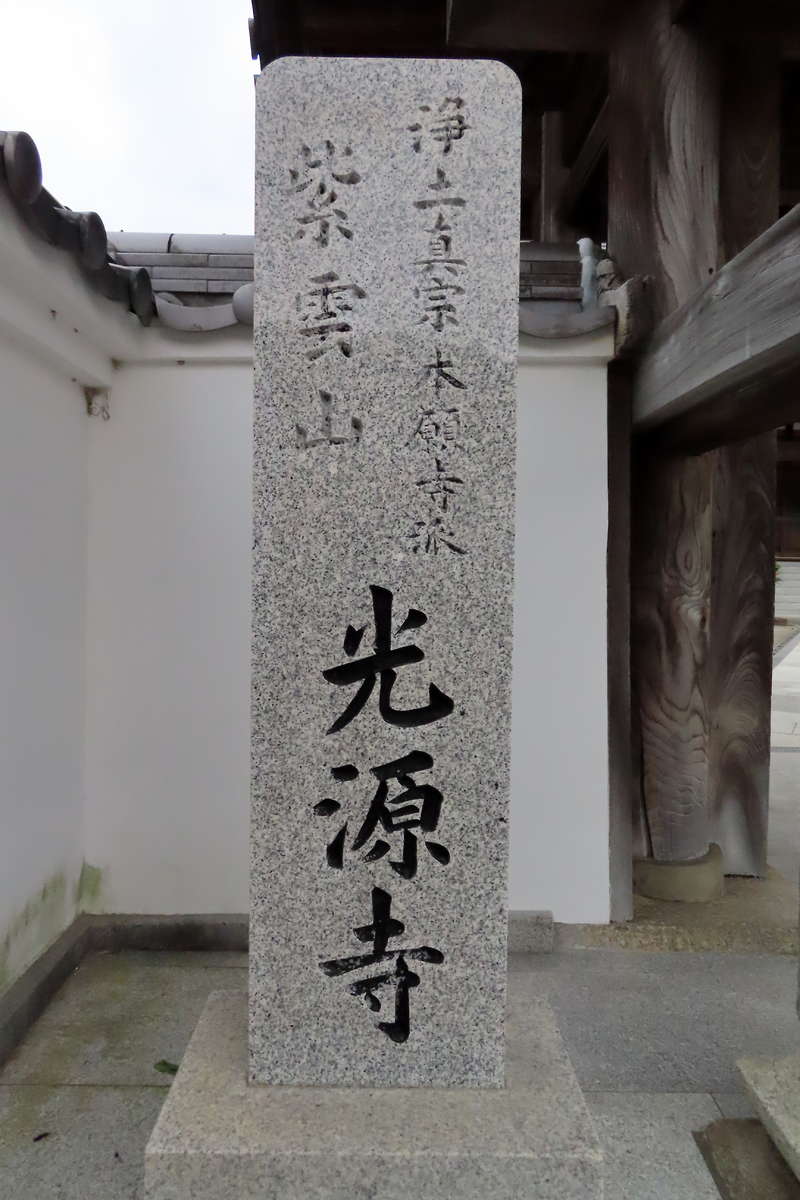 浄土真宗本願寺派
紫雲山
光源寺